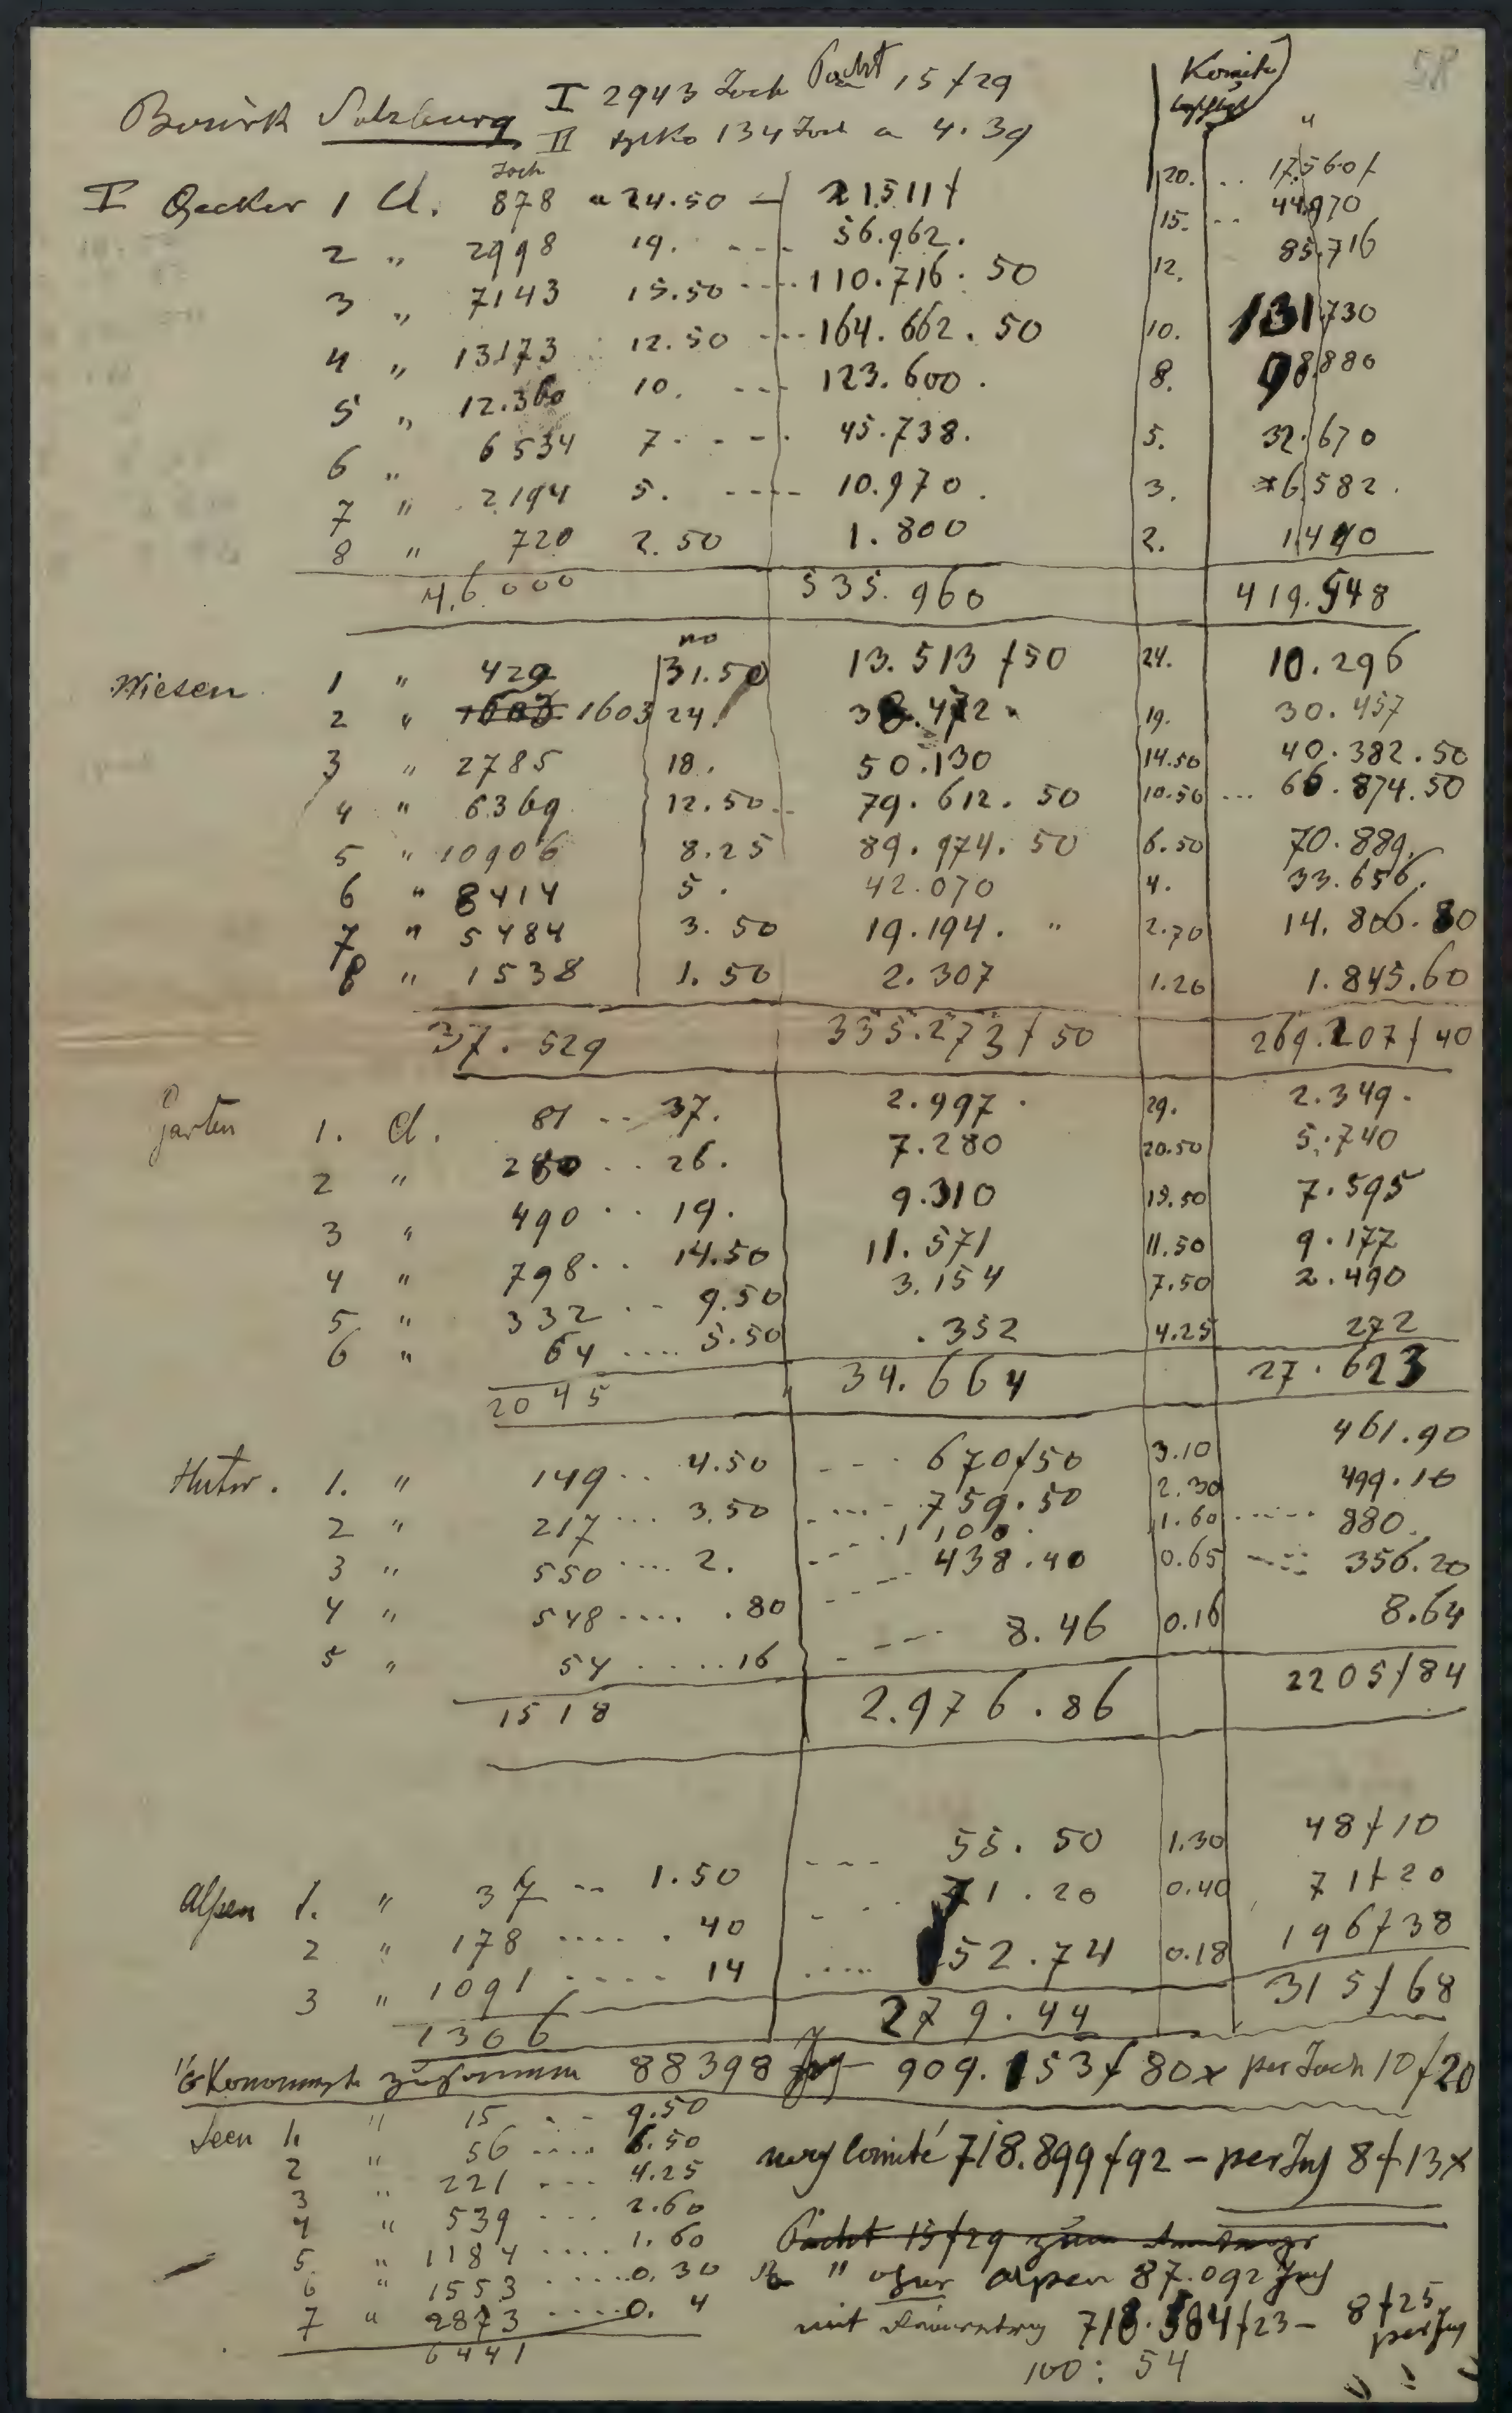 58
Bezirk Salzburg I 2943 Joch Pacht 15 f 29
II tylko 134 Joch a 4.39
Komite
Joch
I Aecker 1 Cl. 878 a 24.50 — 21511 f 20. .. 17.560 f
2 " 2998 19. --- 56.962. 15. -- 44.970
3 " 7143 15.50 ---- 110.716.50 12. 85.716
4 " 13173 12.50 --- 164.662.50 10. 131.730
5 " 12.360 10. --- 123.600. 8. 98.880
6 " 6534 7 - - - . 45.738. 5. 32.670
7 " 2194 5. ---- 10.970. 3. 6.582.
8 " 720 2.50 1.800 2. 1440
46.000 535.960 419.548
no
Wiesen 1 " 429 31.50 13.513 f 50 24. 10.296
2 " 1603 24. 38.472 19. 30.457
3 " 2785 18. 50.130 14.50 40.382.50
4 " 6369 12.50 .. 79.612.50 10.50 ... 66.874.50
5 " 10906 8.25 89.974.50 6.50 70.889.
6 " 8414 5. 42.070 4. 33.656.
7 " 5484 3.50 19.194. " 2.70 14.806.80
8 " 1538 1.50 2.307 1.20 1.845.60
37.529 335.273 f 50 269.207 f 40
Gärten 1. Cl. 81 -- 37. 2.997. 29. 2.349.
2 " 280 ... 26. 7.280 20.50 5.740
3 " 490 .. 19. 9.310 15.50 7.595
4 " 798 .. 14.50 11.571 11.50 9.177
5 " 332 .. 9.50 3.154 7.50 2.490
6 " 64 .... 5.50 .352 4.25 272
2045 34.664 27.623
Hutw. 1. " 149 .. 4.50 --- 670 f 50 3.10 461.90
2 " 217 ... 3.50 ---- 759.50 2.30 499.10
3 " 550 .... 2. --- 1100. 1.60 ------ 880.
4 " 548 .... .80 --- 438.40 0.65 ---- 356.20
5 " 54 .....16 - --- 8.46 0.16 8.64
1518 2.976.86 2205 f 84
Alpen 1. " 37 -- 1.50 --- 55.50 1.30 48 f 10
2 " 178 ..... .40 - - . 71.20 0.40 71 f 20
3 " 1091 ..... 14 ..... 152.74 0.18 196 f 38
1306 279.44 315 f 68
zusammen 88398 Jog — 909.153 f 80x per Joch 10 f 20
Seen 1. " 15 . - 9.50
2 " 56 .... 6.50 Comité 718.899 f 92 – per Joch 8 f 13x
3 " 221 --- 4.25
4 " 539 ... 2.60
5. " 1184 .... 1.60 Pacht 15 f 29 zum
6 " 1553 .....0.30 " ohne Alpen 87.092 Joch
7 " 2873 ....0.4 mit 718.584 f 23 – 8 f 25 per Joch
6441
100 : 54